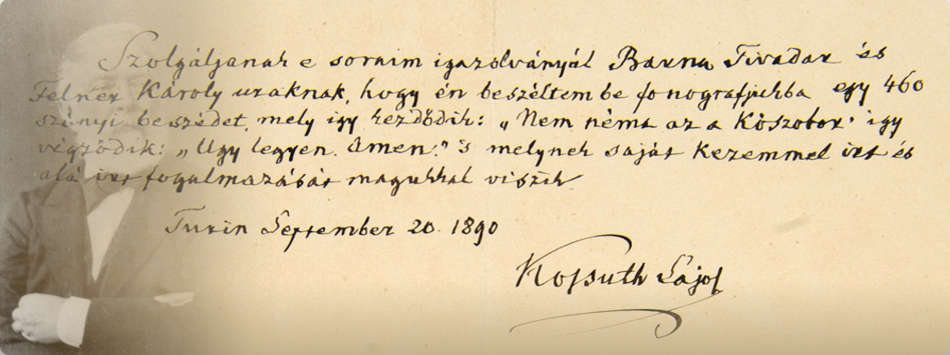 Szolgáljanak e soraim igazolványúl Barna Tivadar és
Felner Károly uraknak, hogy én beszéltem be fonografjukba egy 460
szónyi beszédet, mely így kezdődik: „Nem néma az a Kőszobor" így
végződik: „Ugy legyen. Amen." 's melynek saját kezemmel irt és
alá irt fogalmazását magukkal viszik.
Turin September 20. 1890
Kossuth Lajos